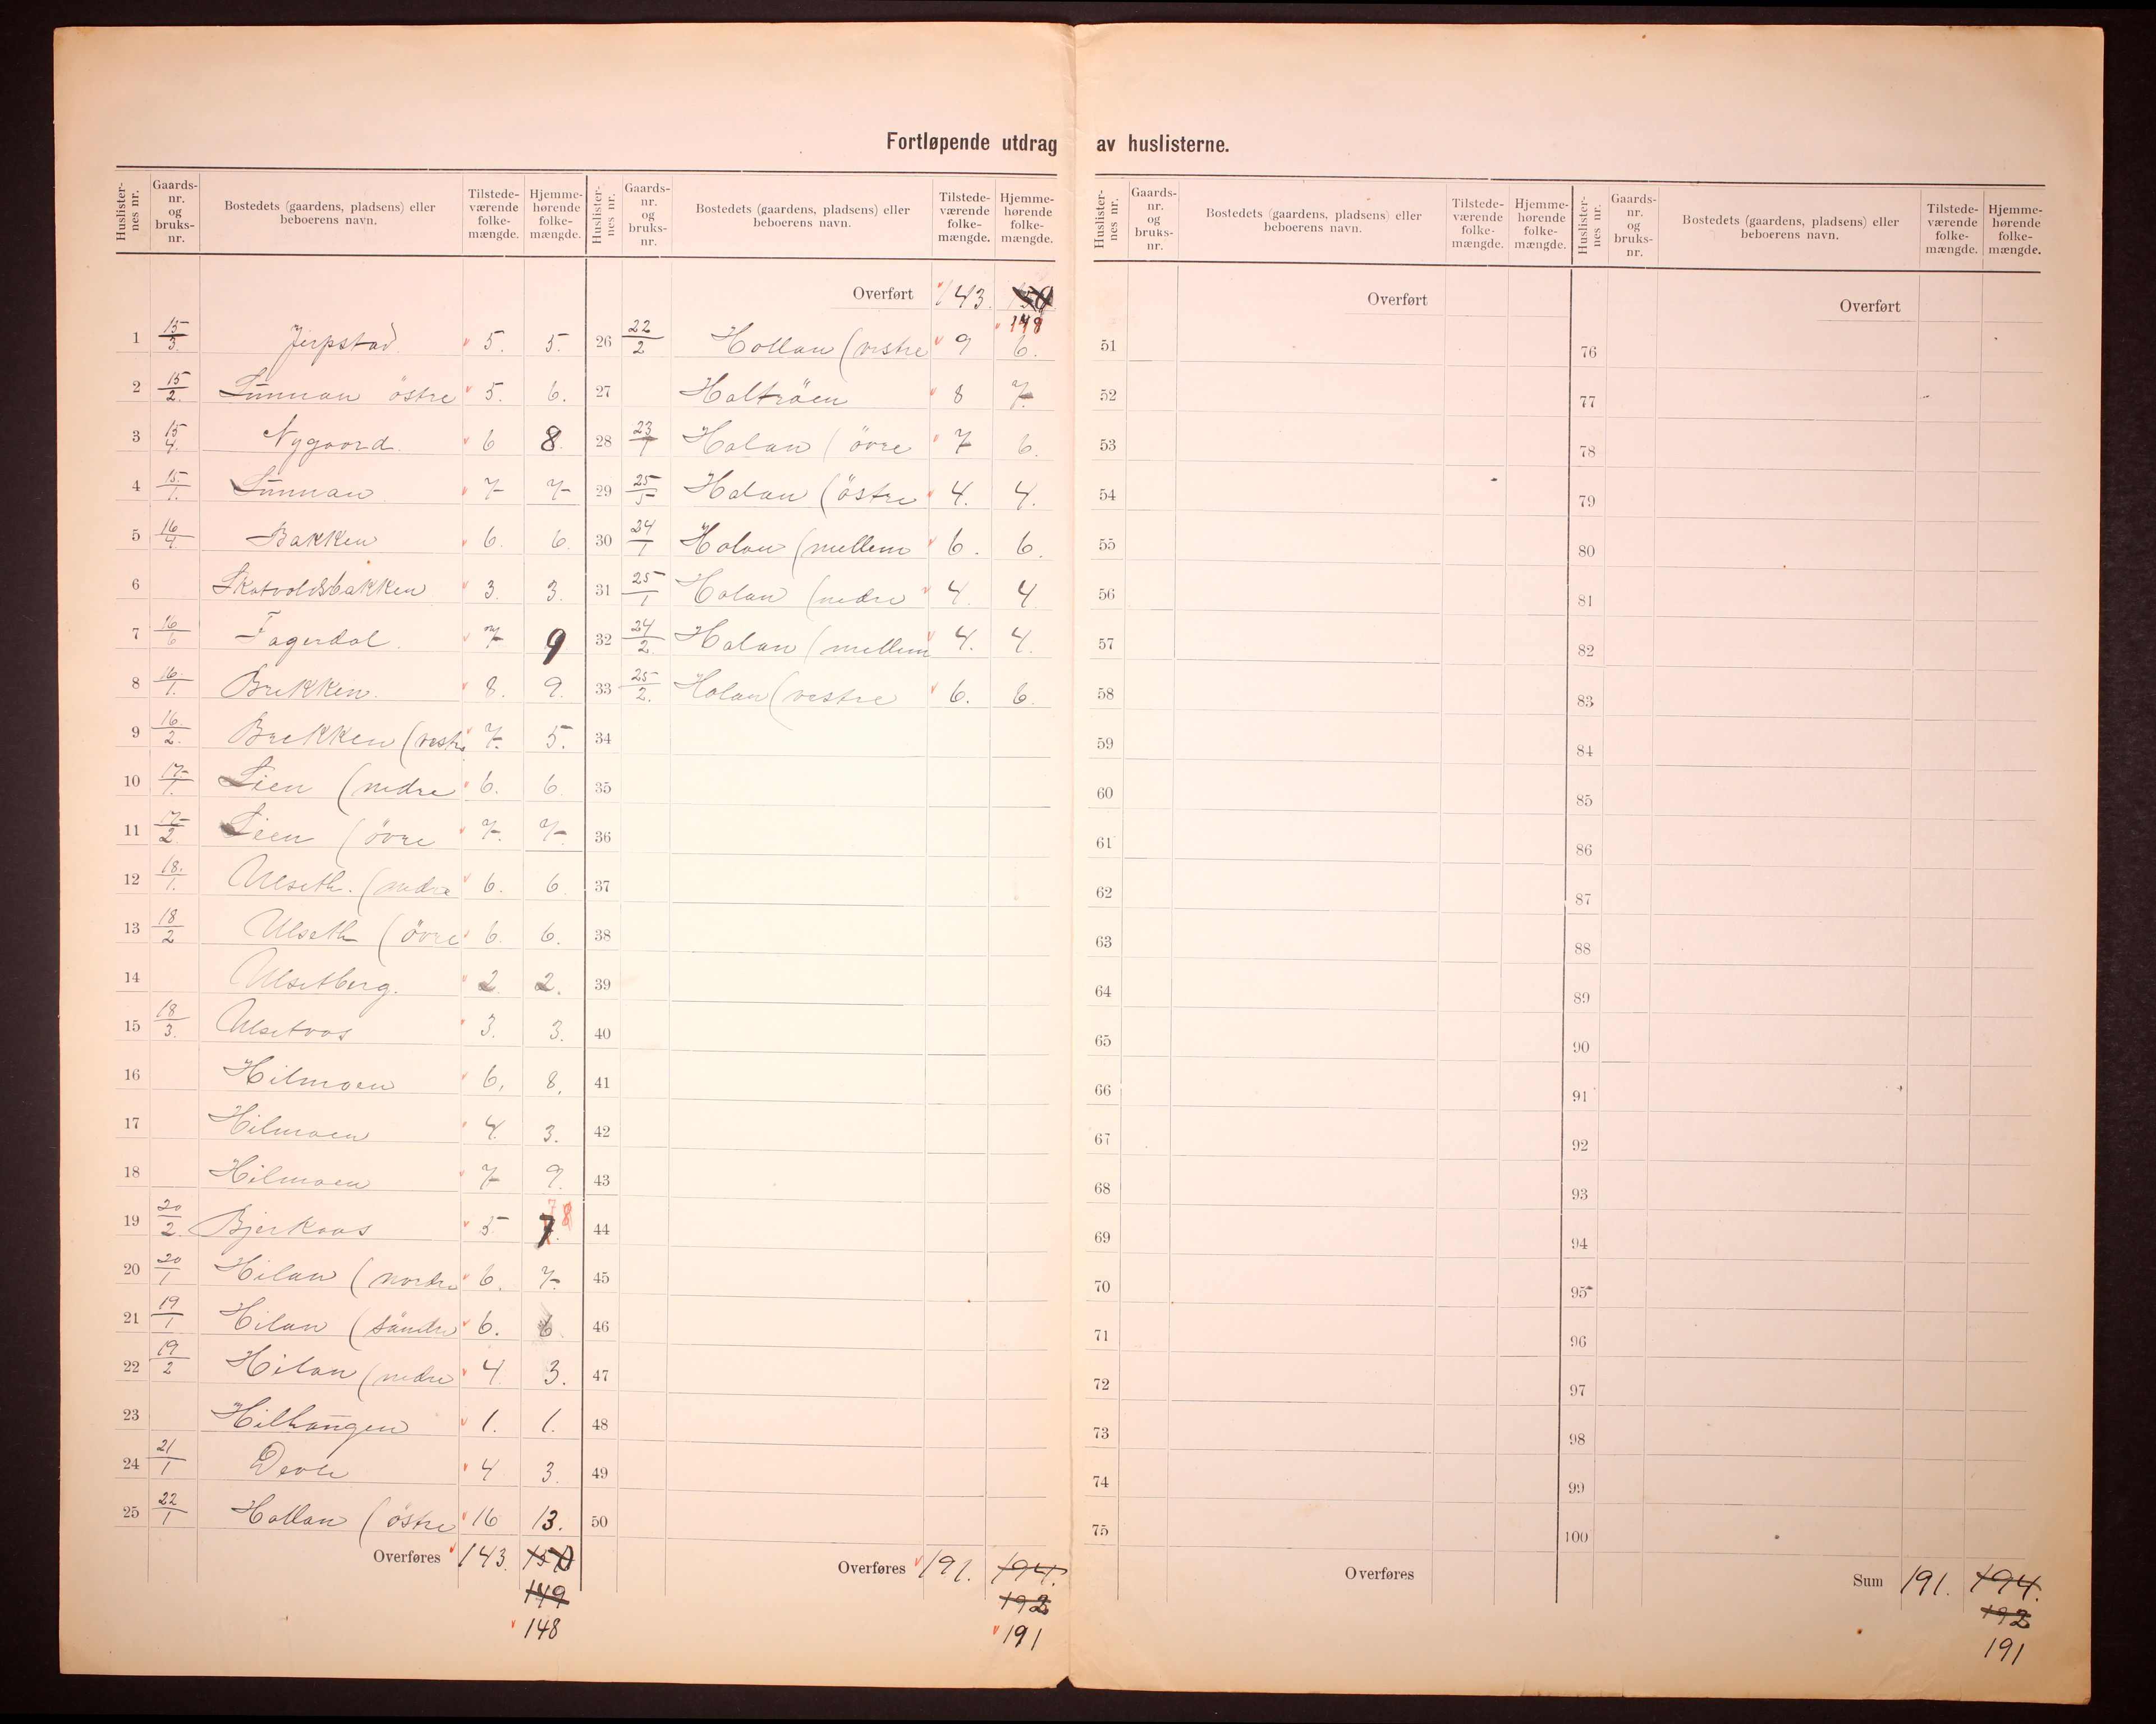 Fortløpende utdrag av huslisterne.
Huslister-nes nr. | Gaards-nr. og bruks-nr. | Bostedets (gaardens, pladsens) eller beboerens navn. | Tilstede-værende folke-mængde. | Hjemme-hørende folke-mængde.
1 15/3. Jerpstad. 5. 5.
2 15/2. Sunnan östre 5. 6.
3 15/4. Nygaard. 6 8.
4 15./1. Sunnan. 7 7
5 16/4. Bakken 6. 6.
6 Skatvoldsbakken 3. 3.
7 16/6 Fagerdal. 7 9
8 16./1. Brekken. 8. 9.
9 16./2. Brekken (vestre 7. 5.
10 17/1. Lien (nedre 6. 6.
11 17/2 Lien (övre 7. 7.
12 18./1. Ulseth. (nedre 6. 6.
13 18/2 Ulseth (övre 6. 6.
14 Ulsetberg. 2. 2.
15 18/3. Ulsetaas 3. 3.
16 Hilmoen 6. 8.
17 Hilmoen 4. 3.
18 Hilmoen 7 9.
19 20/2. Bjerkaas 5. 7. 7 8
20 20/1 Hilan (nordre 6. 7.
21 19/1 Hilan (søndre 6. 6
22 19/2 Hilan (nedre 4. 3.
23 Hilhaugen 1. 1.
24 21/1 Devle 4 3.
25 22/1 Hallan (östre 16 13.
Overføres 143. 150
149
148
Huslister-nes nr. | Gaards-nr. og bruks-nr. | Bostedets (gaardens, pladsens) eller beboerens navn. | Tilstede-værende folke-mængde. | Hjemme-hørende folke-mængde.
Overført 143. 150
148
26 22/2 Hollan (vestre 9 6.
27 Holtröen 8 7.
28 23/1 Holan (övre 7 6.
29 25/5 Holan (östre 4. 4.
30 24/1 Holan (mellem 6. 6.
31 25/1 Holan (nedre 4. 4
32 24/2. Holan (mellem 4. 4.
33 25/2. Holan (vestre 6. 6.
34
35
36
37
38
39
40
41
42
43
44
45
46
47
48
49
50
Overføres 191. 194.
192
191
Huslister-nes nr. | Gaards-nr. og bruks-nr. | Bostedets (gaardens, pladsens) eller beboerens navn. | Tilstede-værende folke-mængde. | Hjemme-hørende folke-mængde.
Overført
51
52
53
54
55
56
57
58
59
60
61
62
63
64
65
66
67
68
69
70
71
72
73
74
75
Overføres
Huslister-nes nr. | Gaards-nr. og bruks-nr. | Bostedets (gaardens, pladsens) eller beboerens navn. | Tilstede-værende folke-mængde. | Hjemme-hørende folke-mængde.
Overført
76
77
78
79
80
81
82
83
84
85
86
87
88
89
90
91
92
93
94
95
96
97
98
99
100
Sum 191. 194.
192
191